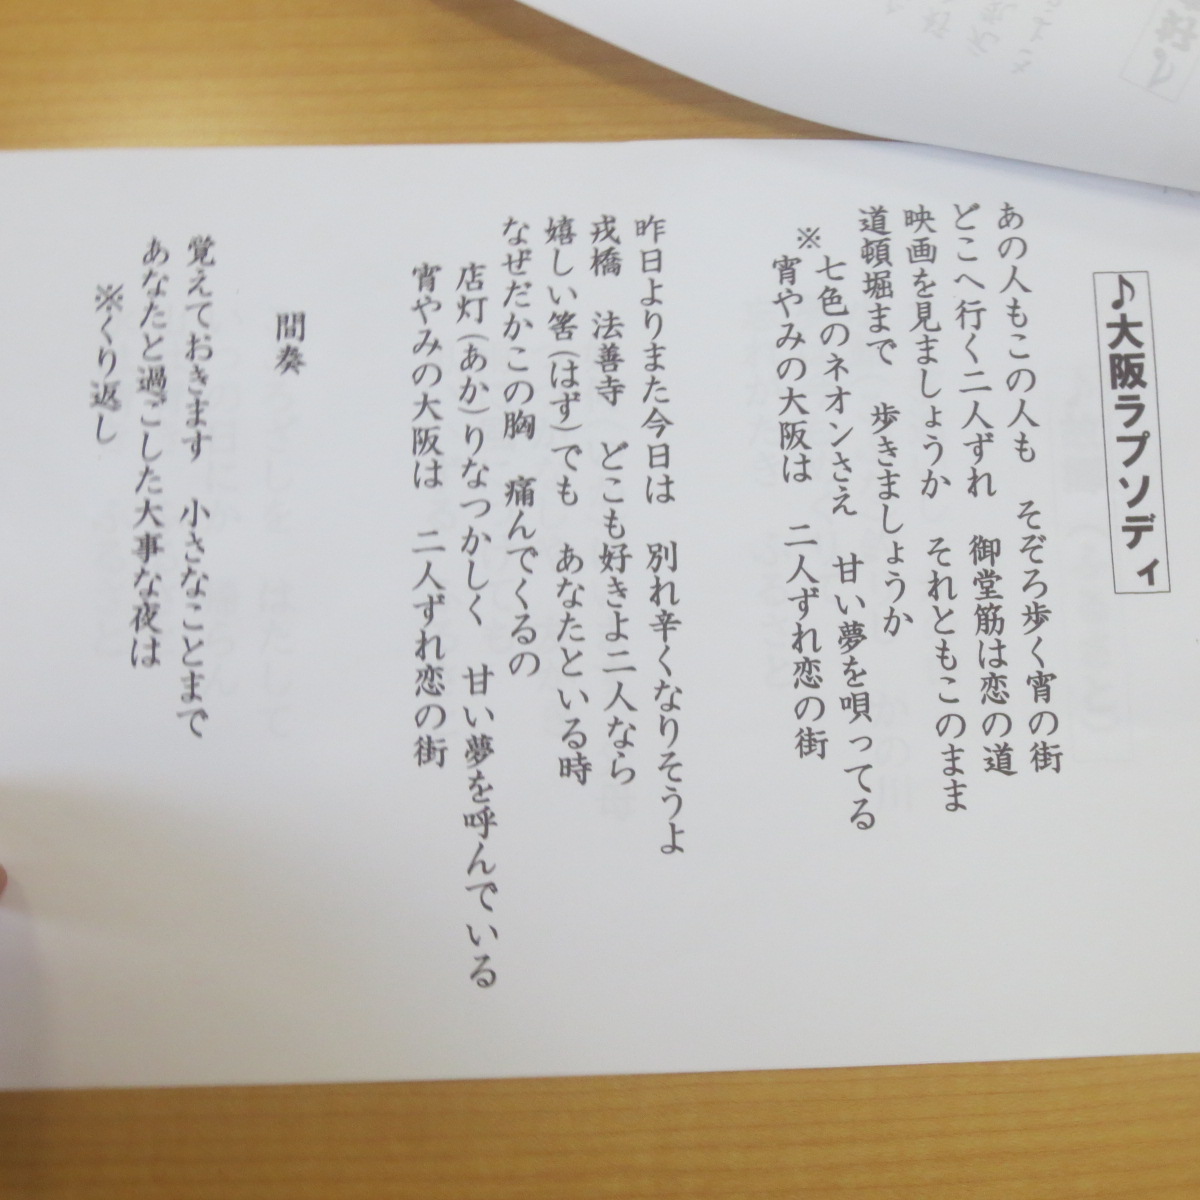 ♪大阪ラプソディ
あの人もこの人も　そぞろ歩く宵の街
どこへ行く二人ずれ　御堂筋は恋の道
映画を見ましょうか　それともこのまま
道頓堀まで　歩きましょうか
※七色のネオンさえ　甘い夢を唄ってる
宵やみの大阪は　二人ずれ恋の街
昨日よりまた今日は　別れ辛くなりそうよ
戎橋　法善寺　どこも好きよ二人なら
嬉しい筈(はず)でも　あなたといる時
なぜだかこの胸　痛んでくるの
店灯(あか)りなつかしく　甘い夢を呼んでいる
宵やみの大阪は　二人ずれ恋の街
間奏
覚えておきます　小さなことまで
あなたと過ごした大事な夜は
※くり返し